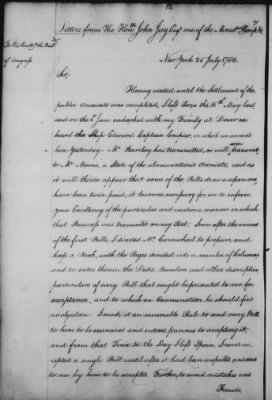 Letters from The Honble John Jay Esqr one of the Minist. Plenipo. &c
To His Excelly the Presdt of Congress
New York 26 July 1784.
Sir,
Having waited until the Settlement of the
public accounts was compleated, I left Paris the 16th May last,
and on the 1st June embarked with my Family at Dover on
board the Ship Edward Captain Couper, in which we arrived
here Yesterday. Mr. Barclay has transmitted, or will transmit
to Mr. Morris, a State of the abovementioned Accounts; and as
it will thence appear that some of the Bills drawn upon me,
have been twice paid, it becomes necessary for me to inform
your Excellency of the particular and cautious manner in which
that Business was transacted on my Part. Soon after the arrival
of the first Bills, I directed Mr. Carmichael to prepare and
keep a Book, with the Pages divided into a number of Columns
and to enter therein the Dates, Numbers and other descriptive
particulars of every Bill that might be presented to me for
acceptance, and to which on Examination he should find
no objection. I made it an invariable Rule to send every Bill
to him to be examined and entered previous to accepting it;
and from that Time to the Day I left Spain, I never ac-
cepted a single Bill until after it had been inspected and sent
to me by him to be accepted. Further, to avoid mistakes and
Frauds,